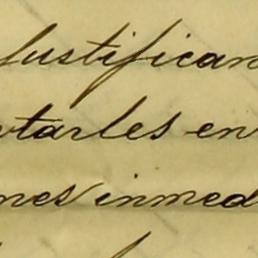 justifican
tarles en
nes inmed